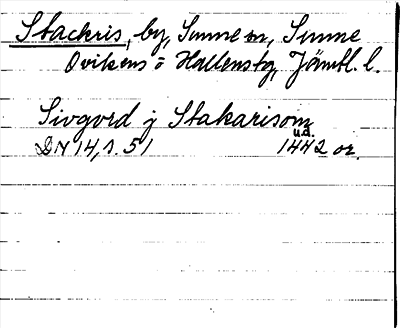 Stackris, by, Sunne sn, Sunne
Ovikens o Hallens tg, Jämtl. l.
Sivgvrd j Stakarisom
u.d.
DN 14, s. 51 1442 or.